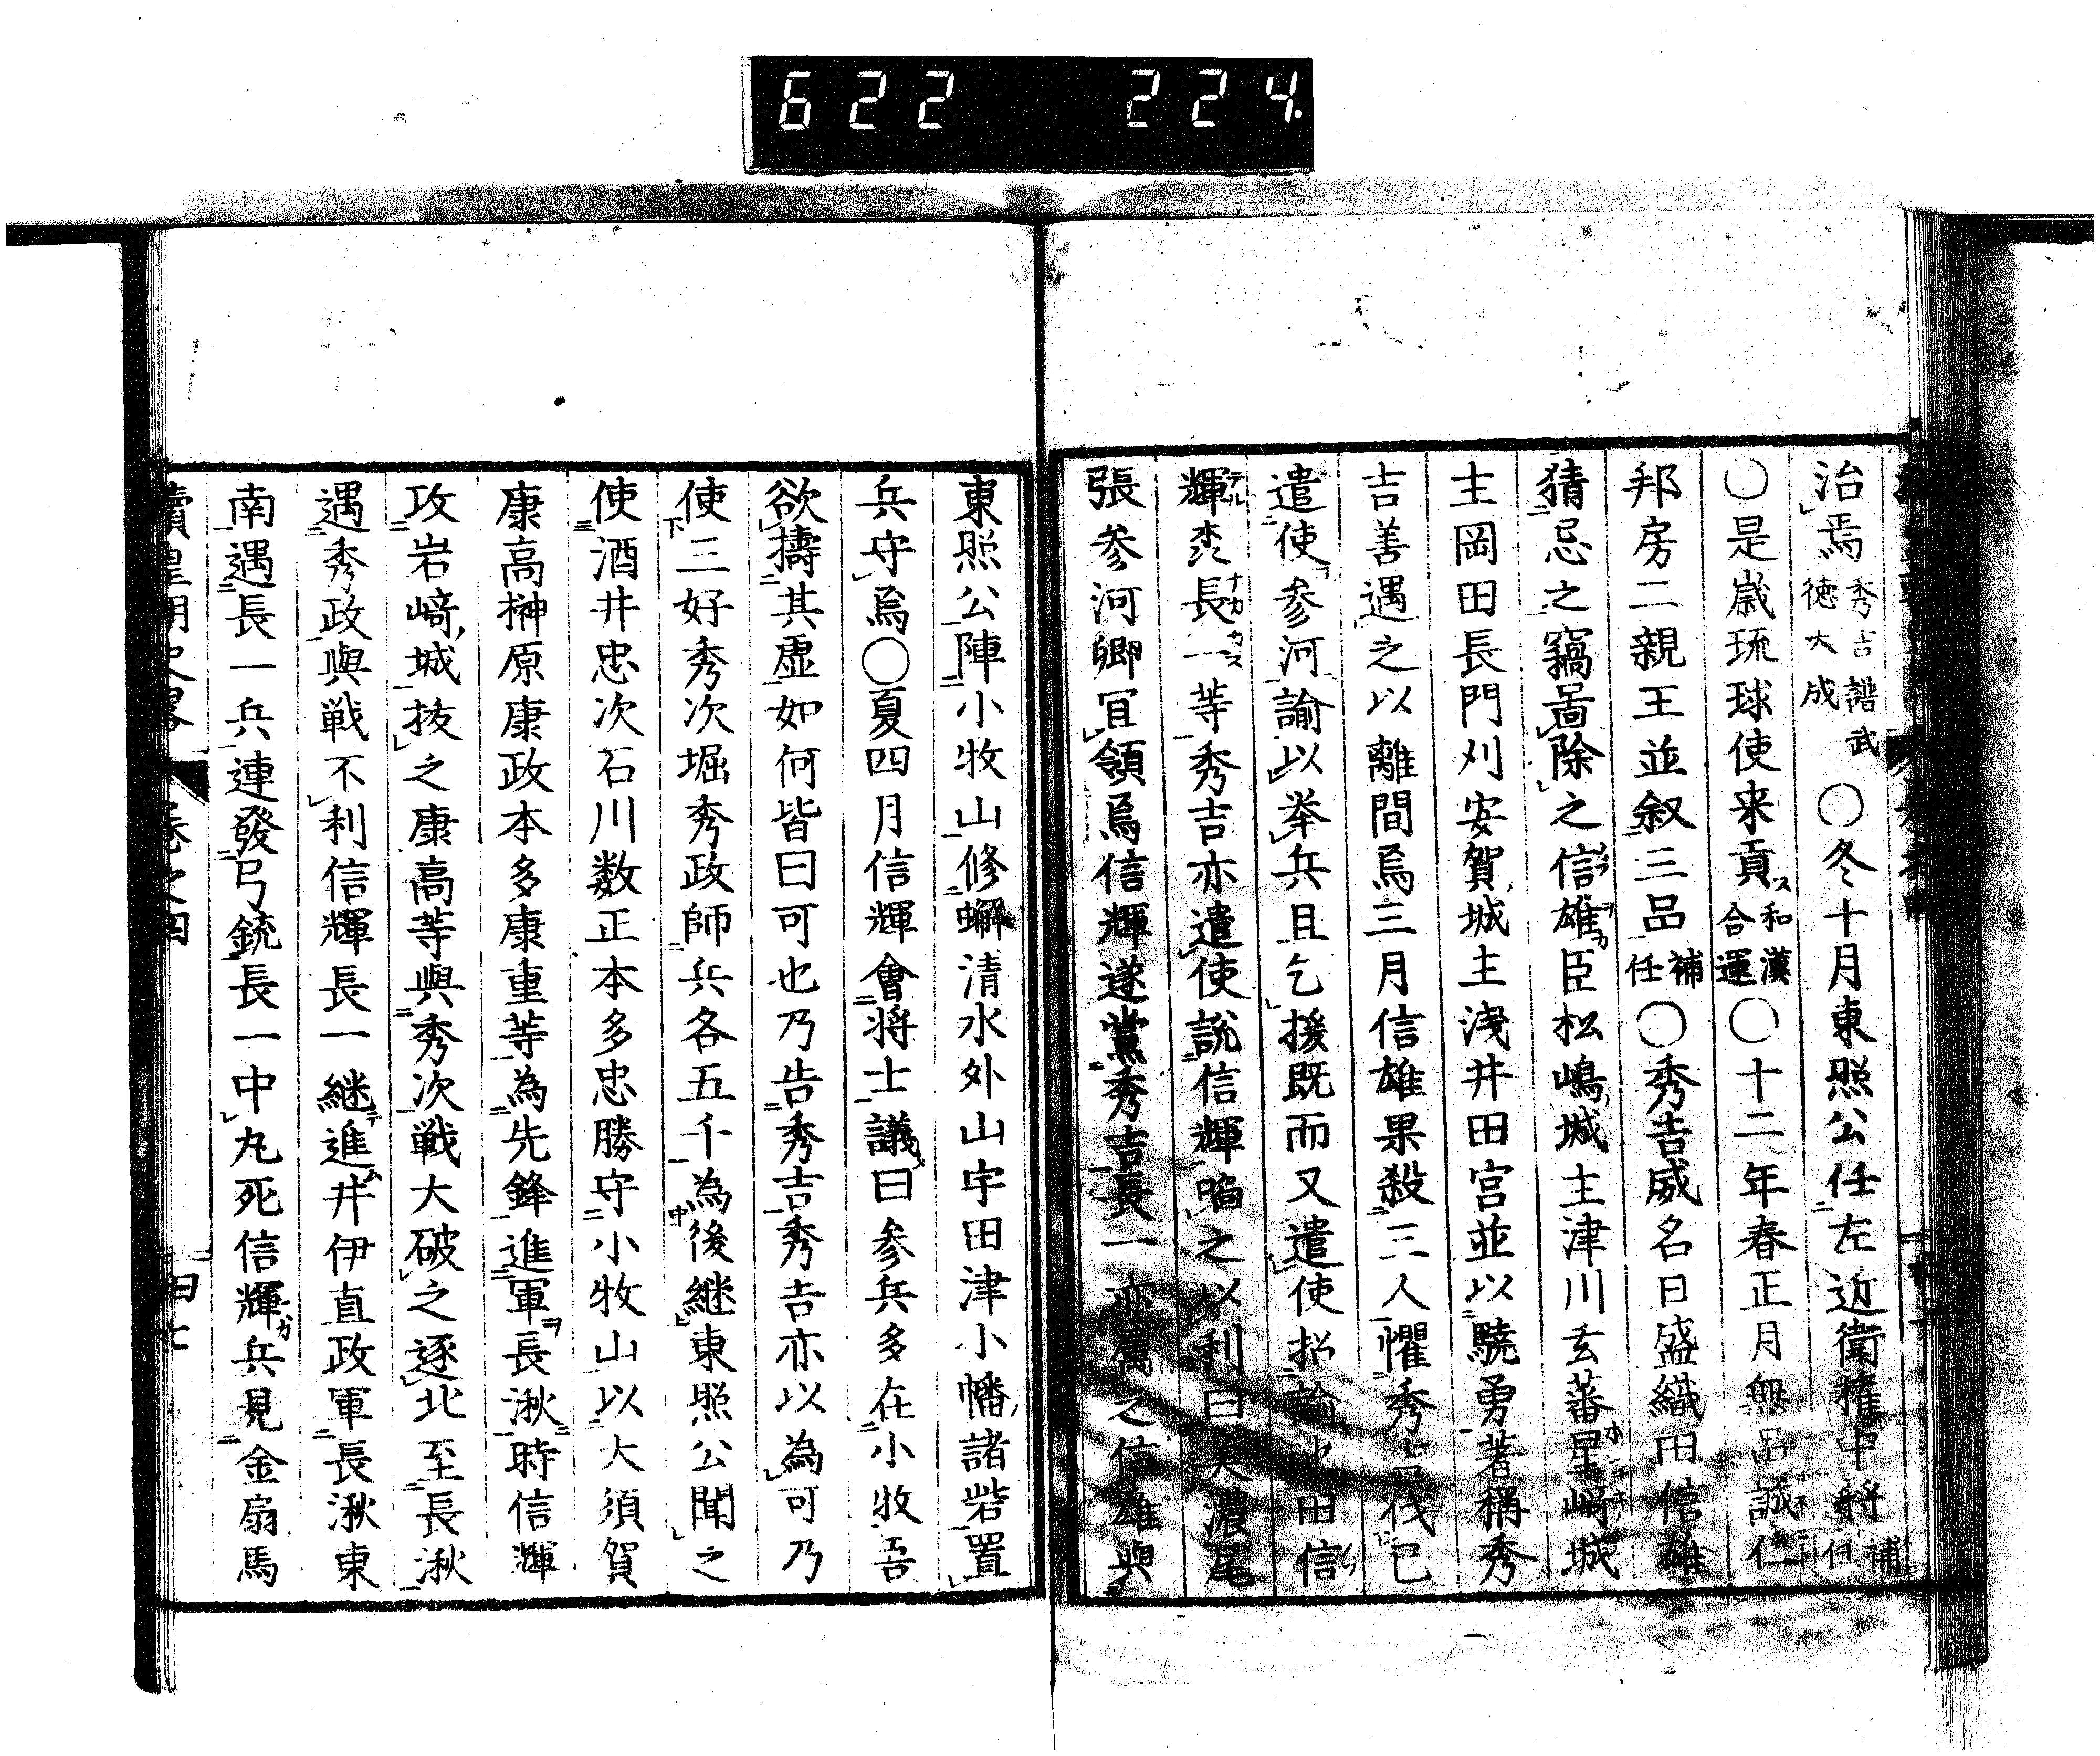 622 224
治焉秀吉譜武德大成○冬十月東照公任左近衛權中將補任
○是歲琉球使来貢ス和漢合運○十二年春正月無品誠仁
邦房二親王並叙三品補任○秀吉威名日盛織田信雄
猜忌之竊啚除之信雄臣松嶋城主津川玄蕃星﨑城
主岡田長門刈安賀城主淺井田宮並以驍勇著稱秀
吉善遇之以離間焉三月信雄果殺三人懼秀吉伐己
遣使参河諭以挙兵且乞援既而又遣使招諭池田信
輝森長一等秀吉亦遣使說信輝啗之以利曰美濃尾
張参河卿冝領焉信輝遂黨秀吉長一亦属之信雄與
東照公陣小牧山修蠏清水外山宇田津小幡諸砦置
兵守焉○夏四月信輝會将士議曰参兵多在小牧吾
欲擣其虚如何皆曰可也乃告秀吉秀吉亦以為可乃
使三好秀次堀秀政師兵各五千為後継東照公聞之
使酒井忠次石川数正本多忠勝守小牧山以大須賀
康高榊原康政本多康重等為先鋒進軍長湫時信輝
攻岩﨑城抜之康高等與秀次戦大破之逐北至長湫
遇秀政與戦不利信輝長一継進井伊直政軍長湫東
南遇長一兵連發弓銃長一中丸死信輝兵見金扇馬
續皇朝史畧 卷之四 四七